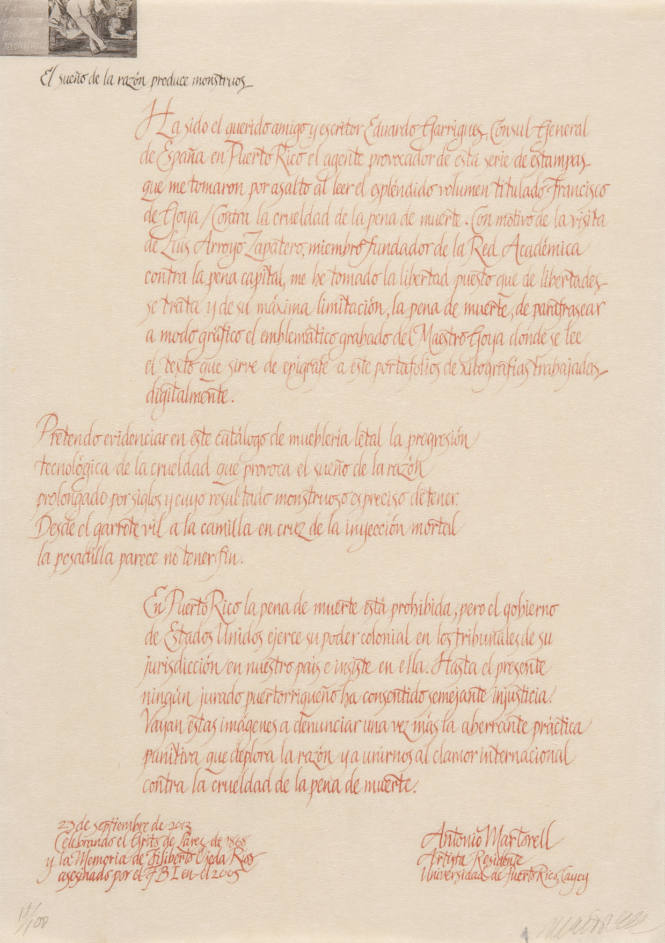 El sueño de la razón produce monstruos
Ha sido el querido amigo y escritor Eduardo Garrigues, Consul General
de España en Puerto Rico el agente provocador de esta serie de estampas
que me tomaron por asalto al leer el espléndido volumen titulado Francisco
de Goya / Contra la crueldad de la pena de muerte. Con motivo de la visita
de Luis Arroyo Zapatero, miembro fundador de la Red Académica
contra la pena capital, me he tomado la libertad puesto que de libertades
se trata y de su máxima limitación, la pena de muerte, de parafrasear
a modo gráfico el emblemático grabado del Maestro Goya donde se lee
el texto que sirve de epígrafe a este portafolios de xilografías trabajadas
digitalmente.
Pretendo evidenciar en este catálogo de mueblería letal la progresión
tecnológica de la crueldad que provoca el sueño de la razón
prolongado por siglos y cuyo resultado monstruoso es preciso detener.
Desde el garrote vil a la camilla en cruz de la inyección mortal
la pesadilla parece no tener fin.
En Puerto Rico la pena de muerte está prohibida, pero el gobierno
de Estados Unidos ejerce su poder colonial en los tribunales de su
jurisdicción en nuestro país e insiste en ella. Hasta el presente
ningún jurado puertorriqueño ha consentido semejante injusticia.
Vayan estas imágenes a denunciar una vez más la aberrante práctica
punitiva que deplora la razón y a unirnos al clamor internacional
contra la crueldad de la pena de muerte.
23 de septiembre de 2013
Celebrando el Grito de Lares de 1868
y la Memoria de Filiberto Ojeda Ríos
asesinado por el FBI en el 2005
Antonio Martorell
Artista Residente
Universidad de Puerto Rico, Cayey
/100